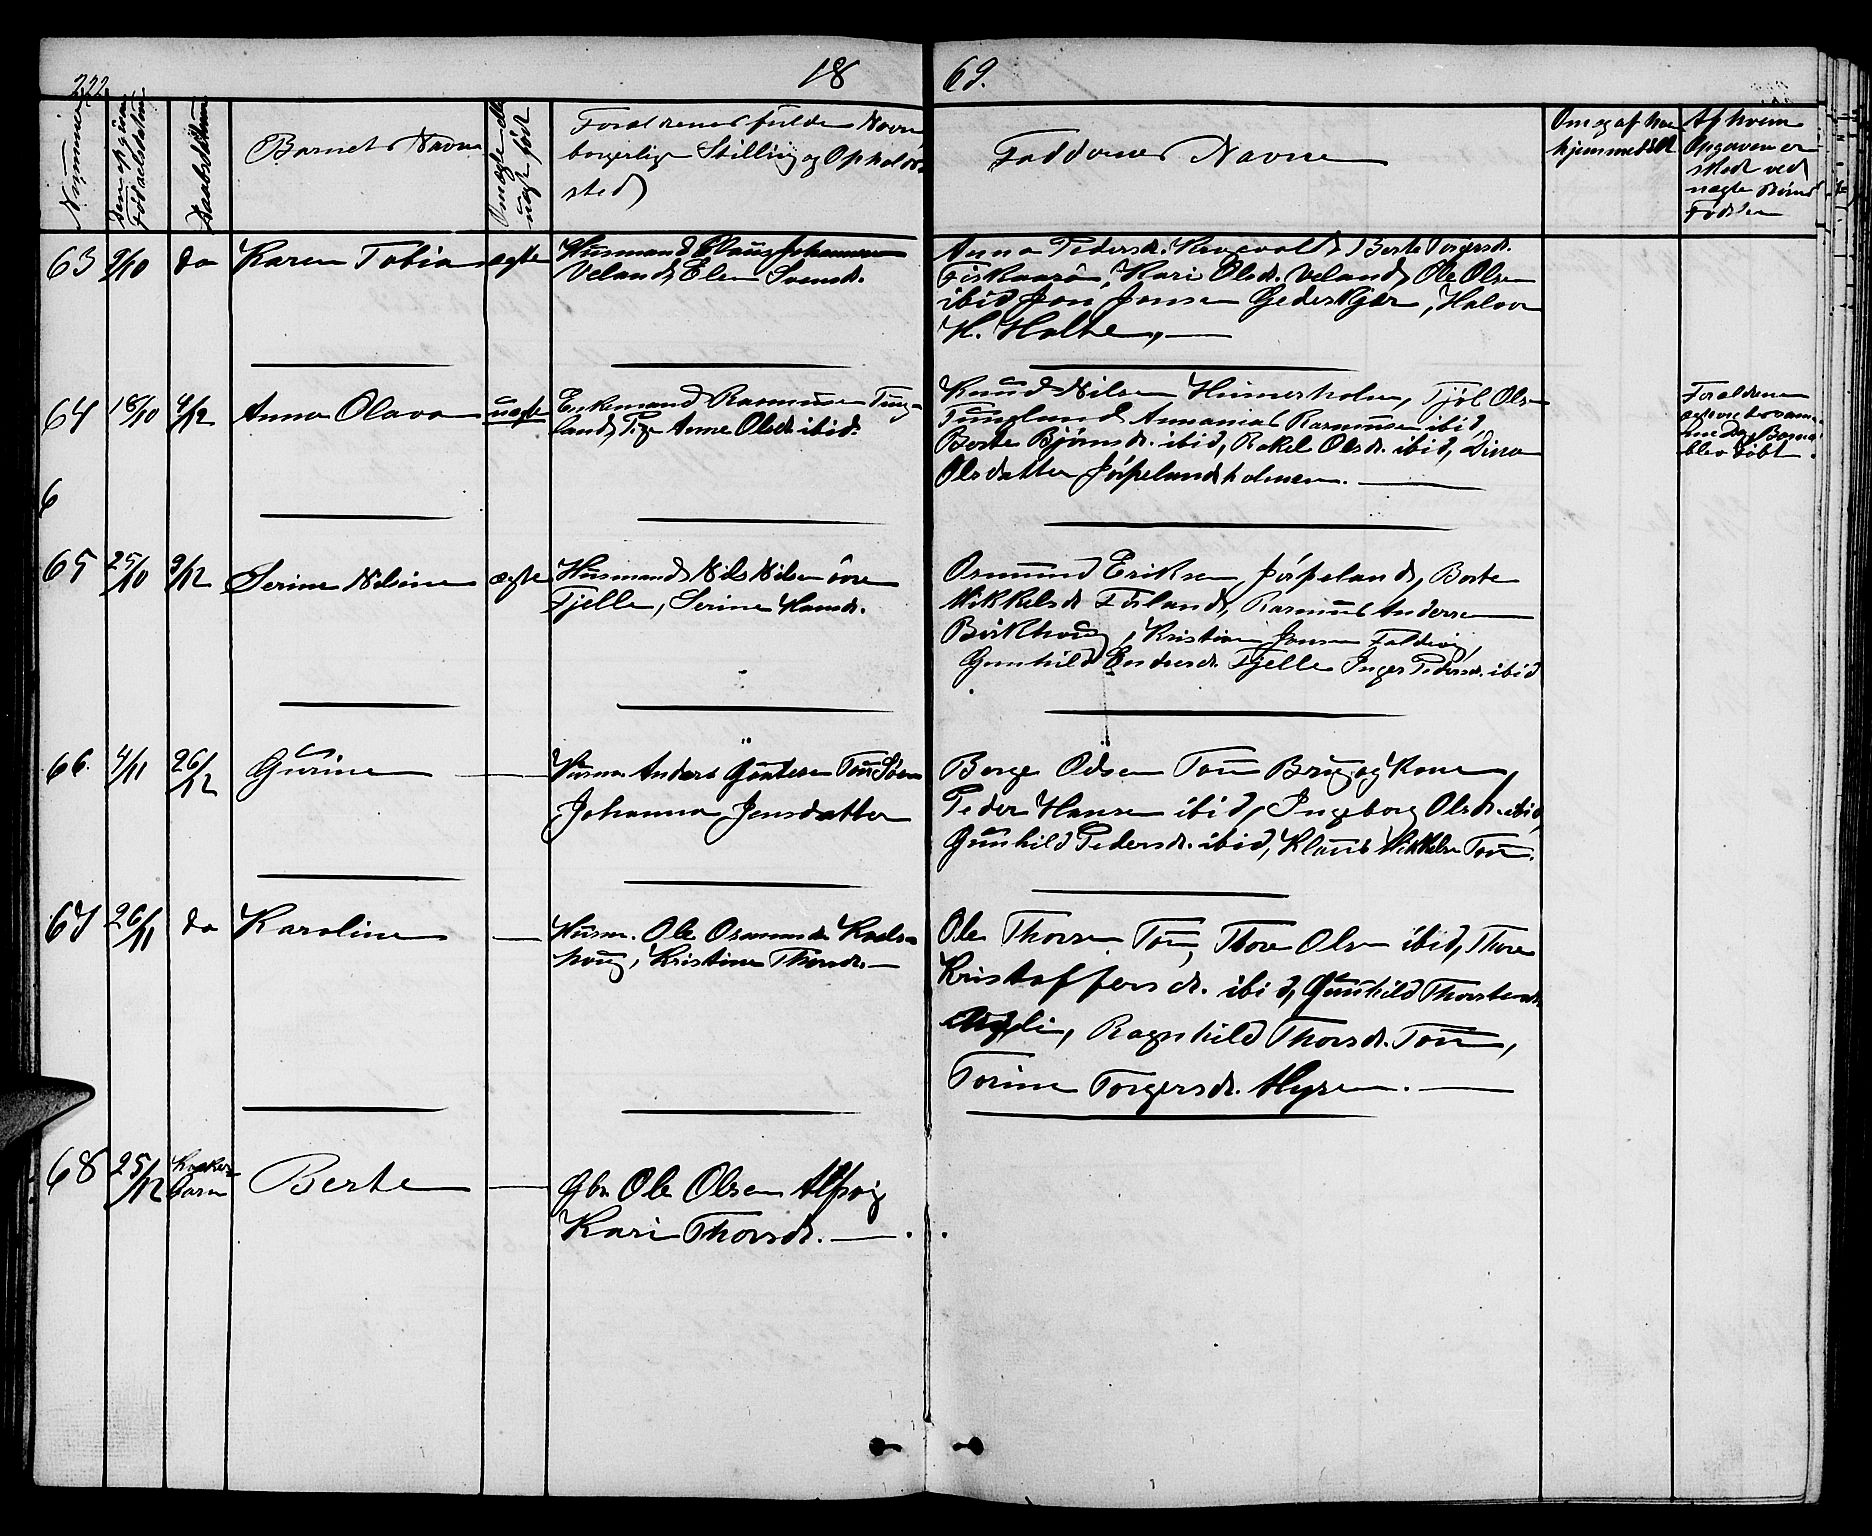 222.
18
69.
Nummer
Den opgivne Fødselsdatum
Daabsdatum
Barnets Navn
Om ægte ell. uægte født
Forældrenes fulde Navn
borgerlige Stilling og Opholds
sted
Faddernes Navne
Om og af hvem
hjemmedøbt
Af hvem
Opgaven er
skedt ved
uægte Børns
Fødsler
63 9/10 do Karen Tobia ægte
Husmand Claus Johannesen
Veland, Elen Svensd.
Anna Pedersd. Berte Torgersd.
Fiskaaøen, Kari Olsd. Veland, Ole Olsen
ibid Jon Jonsen Gederskjær, Halvor
H. Holte,
64 18/10 4/12 Anna Olava uægte
Enkemand Rasmus Tung-
land, Pige Anne Olsd. ibid.
Knud Nilsen Himerholm, Tjøl Olsen
Tungland Annanias Rasmusen ibid,
Berte Bjørnsd. ibid, Rakel Olsd. ibid, Dina
Olsdatter Jørpelandsholmen.
Forældrene
ægteviet samme
Dag Barnet
blev døbt.
6
65 25/10 9/12 Serine Nilsine ægte
Husmand Nils Nilsen øvre
Fjelle, Serine Hansd.
Osmund Eriksen Jørpeland, Berte
Mikkelsd. Førland, Rasmus Andersen
Birkhoug, Kristian Jonsen Foldvig,
Gunhild Endresd. Fjelle Inger Pedersd. ibid
66. 4/11 26/12 Gurine
Husm. Anders Gautesen Tou Søen
Johanna Jensdatter
Borge Odsen Tou Brug og Kone,
Peder Hansen ibid, Ingeborg Olsd. ibid,
Gunhild Pedersd. ibid, Klaus Mikkelsen Tou.
67 26/11 do Karoline
Husm. Ole Osmundsen Kads-
houg, Kristine Thorsd.
Ole Thorsen Tou, Thore Olsen ibid, Thore
Kristoffersd. ibid, Gunhild Thorstensd.
Ragnhild Thorsd. Tou,
Torine Torgersd. Myren.
68 25/12 Berte
Gbr. Ole Olsen Alsvig
Kari Thorsd.